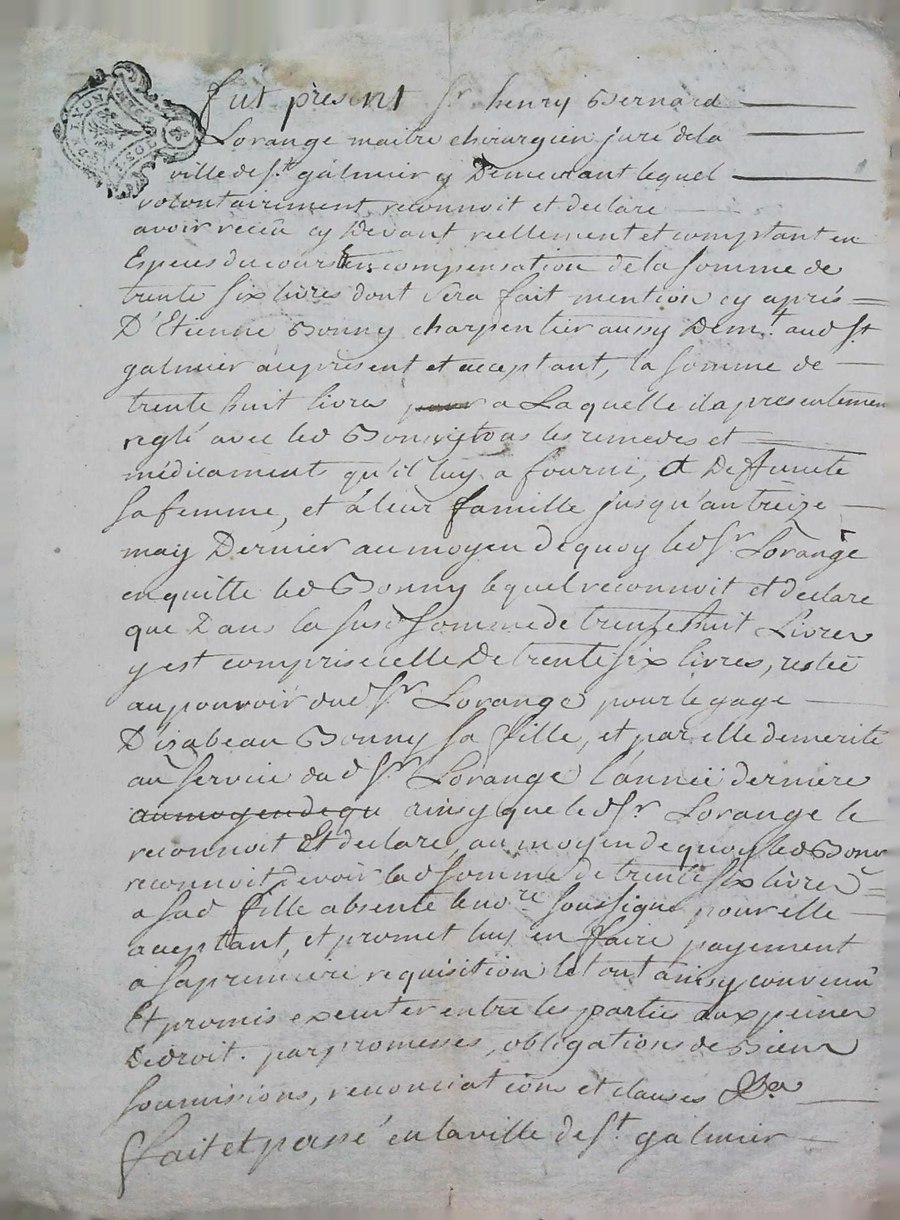 fut présent Sr henry Bernard
Lorange maitre chirurgien juré de la
ville de St galmier y Demeurant lequel
volontairement reconnoit et declare
avoir receu cy Devant reellement et comptant en
Especes du cours Et en compensation de la somme de
trente six livres dont sera fait mention cy aprés
D'Etienne Bonny charpentier aussy Demt. aud St
galmier au present et acceptant, la somme de
trente huit livres pour a Laquelle il a presentement
reglé avec led Bonny tous les remedes et
médicaments qu'il luy a fourni, et Deffunte
sa femme, et à leur famille jusqu'au treize
may Dernier au moyen de quoy led Sr. Lorange
en quitte led Bonny lequel reconnoit et declare
que Dans la susd somme de trente huit Livres
y est comprise celle De trente six livres, restée
au pouvoir dud Sr Lorange pour le gage
D'izabeau Bonny sa fille, et par elle demerité
au service dud Sr Lorange l'anneé derniere
au moyen de qu ainsy que led Sr. Lorange le
reconnoit Et declare, au moyen de quoy led Bonny
reconnoit devoir lad somme de trente six livres
a sad fille absente le nore soussigné pour elle
acceptant, et promet luy en faire payement
a sa premiere requisition le tout ainsy convenu
Et promis executer entre les parties aux peines
De droit. par promesses, obligations de Biens
soumissions, renonciations et clauses &a
fait et passé en la ville de St galmier